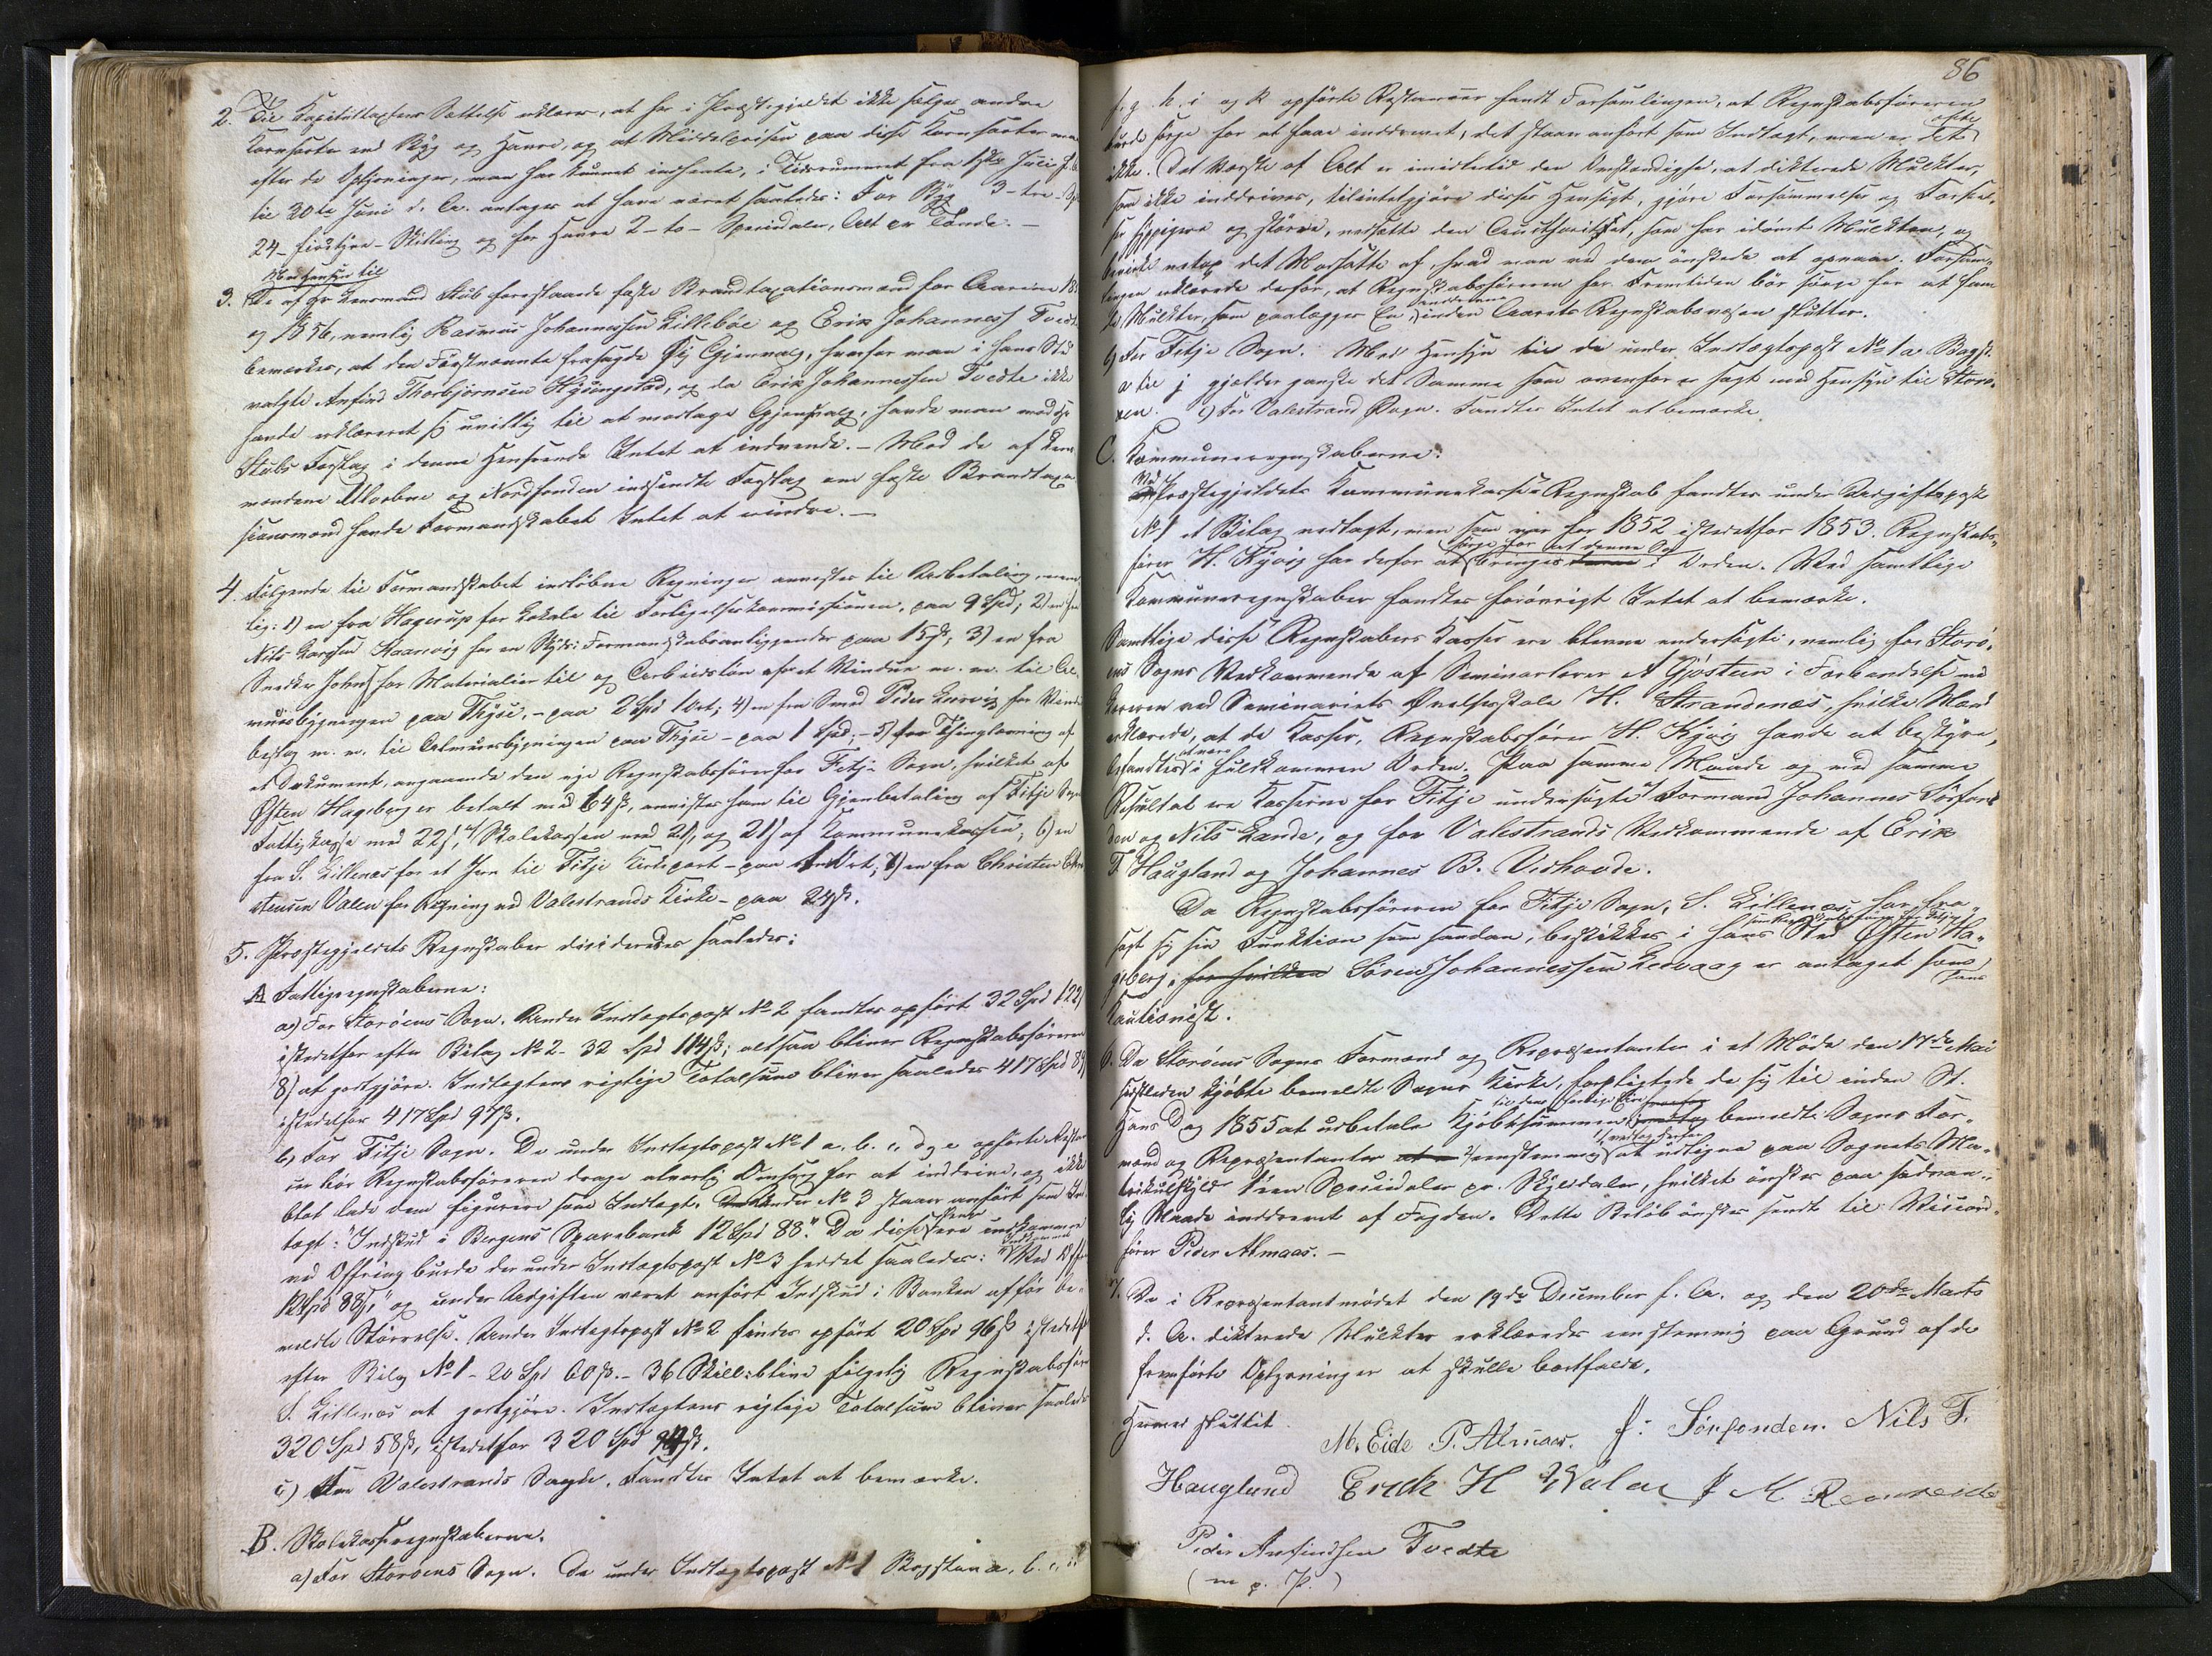 2. Til Kapitelstaxtens Sættelse erklæres, at her i Præstegjeldet ikke sælges andre
Kornsorter end Byg og Havre, og at Middelprisen paa disse Kornsorter
efter de Oplysninger, man har kunnet indhente, i Tidsrummet fra 1ste Juli f. A.
til 30te Juni d. A. antages at have været saaledes: For Byg 3 - tre - Spd
24 - firetyve - Skilling og for Havre 2 - to - Speciedaler, Alt pr Tønde. -
Med Hensyn til
3. De af Hr Lensmand Stub foreslaaede faste Brandtaxationsmænd for Aarene
og 1856, nemlig Rasmus Johannessen Lillebøe og Erik Johanness Tvedte
bemærkes, at den Førstnævnte frasagde sig Gjenvalg, hvorfor man i hans Sted
valgte Anfind Thorbjørnsen Hysingstad, og da Erik Johannessen Tvedte ikke
havde erklæret sig uvillig til at modtage Gjenvalg, havde man mod Hr
Stubs Forslag i denne Henseende Intet at indvende. - Mod de af Lens-
mændene og Nordfonden indsendte Forslag om faste Brandtaxa-
tionsmænd havde Formandskabet Intet at erindre. -
4. Følgende til Formandskabet indløbne Regninger anvistes til Udbetaling, nem-
lig: 1) en fra Hagerup for Lokale til Forligelseskommissionen, paa 9 Spd; 2) en fra
Nils Larssen for en Skyds i Formandskabsanliggender paa 15 ß; 3) en fra
Snedker Johns for Materialier til og Arbeidsløn efter et Vindue m. m. til Al-
muesbygningen paa Thyse, - paa 2 Spd 1 Ort; 4) en fra Smed Peder for Vindu
beslag m. m. til Almuesbygningen paa Thyse - paa 1 Spd; - 5) for Thinglæsning af
et Dokument, angaaende den nye Regnskabsfører for Fitje Sogn, hvilket af
Østen Hageberg er betalt med 64 ß, anvistes ham til Gjenbetaling af Fitje Sogns
Fattigkasse med 22 ß, af Skolekassen med 21 ß, og 21 ß af Kommunekassen; 6) en
fra S. Lillenæs for et Jern til Fitje Kirkeport - paa Ort; 7) en fra Christen
Valen for Rygning ved Valestrands Kirke - paa 24 ß.
5. Præstegjeldets Regnskaber decideredes saaledes:
A Fattigregnskaberne:
a) For Storøens Sogn. Under Indtægtspost No 2 fandtes opført 32 Spd 122 ß
istedetfor efter Bilag No 2 - 32 Spd 114 ß; altsaa bliver Regnskabsføreren
8 ß at godtgjøre. Indtægtens rigtige Totalsum bliver saaledes 417 Spd 89 ß
istedetfor 417 Spd 97 ß.
b) For Fitje Sogn. De under Indtægtspost No 1 a. b. c. d og e opførte Restan-
cer bør Regnskabsføreren drage alvorlig Omsorg for at inddrive, og ikke
blot lade dem figurere som Indtægt. Under No 3 staar anført som Ind-
tægt: "Indskud i Bergens Sparebank 12 Spd 88". Da disse Penge ere indkomne
ved Offring burde der under Indtægtspost No 3 heddet saaledes: "Ved Offer indkommet
12 Spd 88 ß," og under Udgiften været anført Indskud i Banken af før be-
meldte Størrelse. Under Indtægtspost No 2 findes opført 20 Spd 96 ß istedetfor
efter Bilag No 1 - 20 Spd 60 ß. - 36 Skill: bliver følgelig Regnskabsfører
S. Lillenæs at godtgjøre. Indtægtens rigtige Totalsum bliver saaledes
320 Spd 58 ß, istedetfor 320 Spd 94 ß.
c) For Valestrands Sogn. Fandtes Intet at bemærke.
B. Skolekasseregnskaberne.
a) For Storøens Sogn. De under Indtægtspost No 1 Bogstav a, b. c. d
86
f. g. h. i og k opførte Restancer fandt Forsamlingen, at Regnskabsføreren
burde sørge for at faae inddrevet; det staar anført som Indtægt, men er det ofte
ikke. Det Værste af Alt er imidlertid den Omstændighed, at dikterede Mulkter,
som ikke inddrives, tilintetgjøre disses Hensigt, gjøre Forsømmelser og Forseel-
ser hyppigere og større, nedsætte den Aucthoritet, som har idømt Mulkten, og
bevirke netop det Modsatte af hvad man ved dem ønskede at opnaae. Forsam-
lingen erklærede derfor, at Regnskabsføreren for Fremtiden bør sørge for at faae
de Mulkter, som paalægges En, inddrevne inden Aarets Regnskabsvæsen slutter.
b) For Fitje Sogn. Med Hensyn til de under Indtægtspost No 1 a Bogst.
a til j gjælder ganske det Samme som ovenfor er sagt med Hensyn til Storø-
en. c) For Valestrand Sogn. Fandtes Intet at bemærke.
C. Kommuneregnskaberne.
Ved Præstegjeldets Kommunekasses Regnskab fandtes under Udgiftspost
No 1 et Bilag vedlagt, men som var for 1852 istedetfor 1853. Regnskabs-
fører H. Kyvig har derfor at sørge for at denne Sag bringes i Orden. Ved samtlige
Kommuneregnskaber fandtes forøvrigt Intet at bemærke.
Samtlige disse Regnskabers Kasser ere blevne undersøgte, nemlig for Storø-
ens Sogns Vedkommende af Seminarlærer A Gjøstein i Forbindelse med
Læreren ved Seminariets Øvelsesskole H. Strandenæs, hvilke Mænd
erklærede, at de Kasser, Regnskabsfører H. Kyvig havde at bestyre,
befandtes at være i fuldkommen Orden. Paa samme Maade og med samme
Resultat ere Kasserne for Fitje undersøgte af Formand Johannes Sørfon-
den og Nils Lande, og for Valestrands Vedkommende af Erik
T. Haugland og Johannes B. Vidhovde.
Da Regnskabsføreren for Fitje Sogn, S. Lillenæs, har fra-
sagt sig sin Funktion som saadan, beskikkes i hans Sted Østen Ha-
geberg, for hvilken Søren Johannessen Leevaag er antaget som
Kautionist.
6. Da Storøens Sogns Formænd og Repræsentanter i et Møde den 17de Mai
sidstleden kjøbte bemeldte Sogns Kirke, forpligtede de sig til inden St.
Hans Dag 1855 at udbetale Kjøbssummen til dens forrige Eier bemeldte Sogns For-
mænd og Repræsentanter eenstemmig at udligne paa Sognets Ma-
trikulskyld Speciedaler pr. Skylddaler, hvilket ønskes paa sædvan-
lig Maade inddrevet af Fogden. Dette Beløb ønskes sendt til
fører Peder Almaas. -
7. De i Repræsentantmødet den 19de December f. A. og den 20de Marts
d. A. dikterede Mulkter erklæredes eenstemmig paa Grund af de
fremførte Oplysninger at skulle bortfalde.
Hermed sluttet.
M. Eide P. Almaas. J: Sørfonden. Nils T.
Hauglund Erek H Valen J M
Peder Anfindsen Tvedte
(m p. P.)